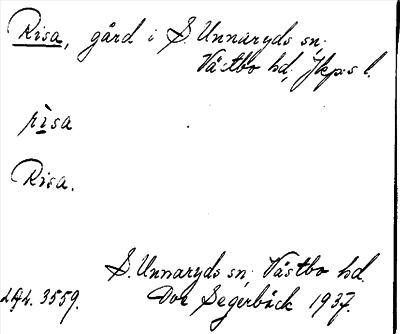 Risa, gård i S. Unnaryds sn.
Västbo hd, Jkps l.
rìsa
Risa.
S. Unnaryds sn, Västbo hd.
Segerbäck 1937.
3559.